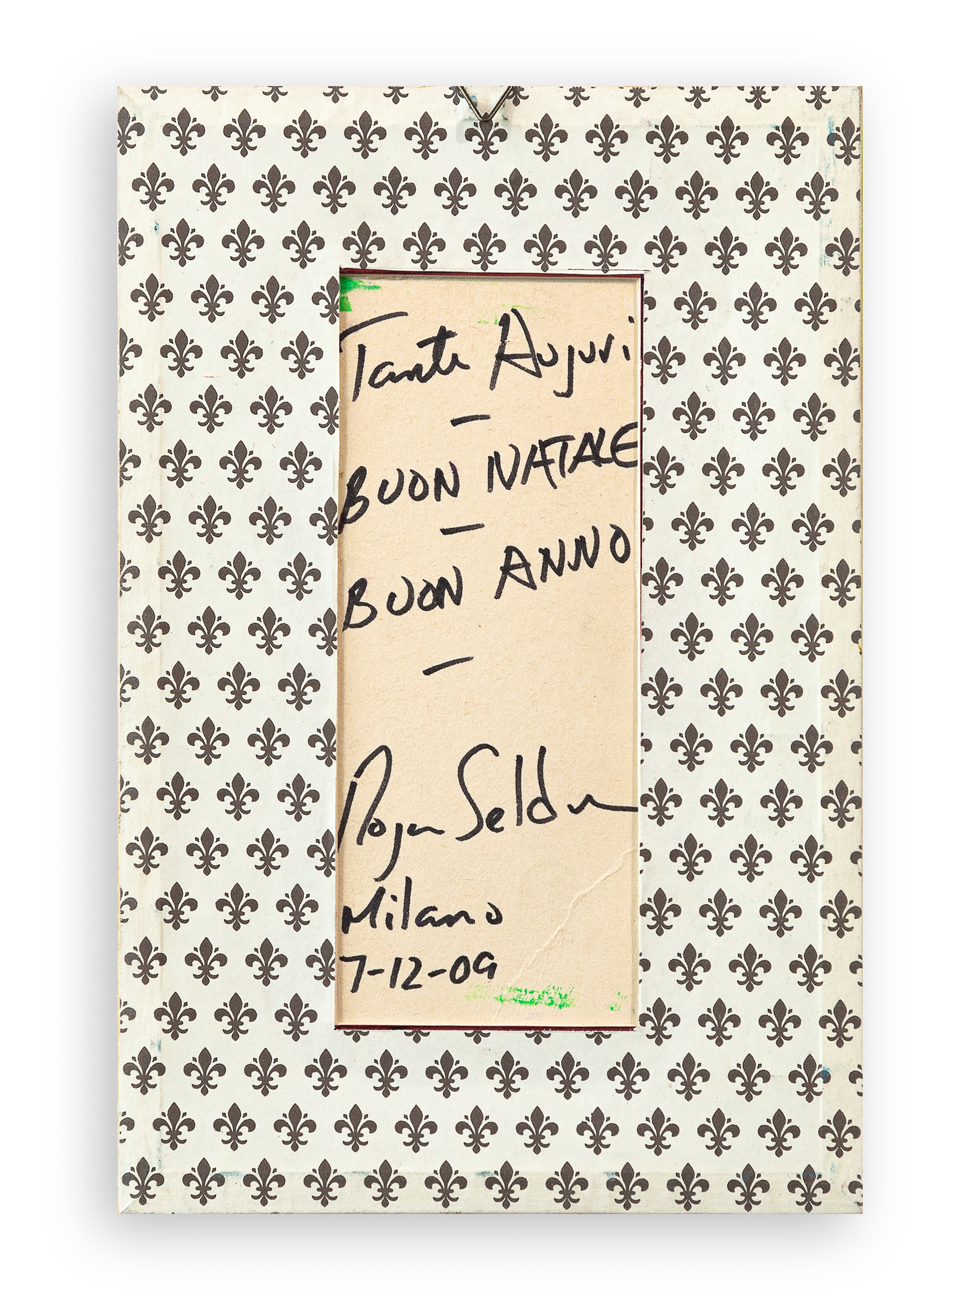 Tanti Auguri
—
BUON NATALE
—
BUON ANNO
—
Roger Selden
Milano
7-12-09